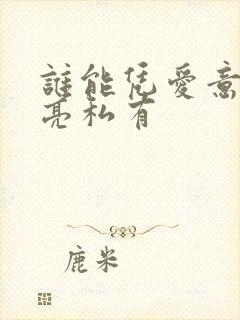 誰能凭愛意
亮私有
鹿米